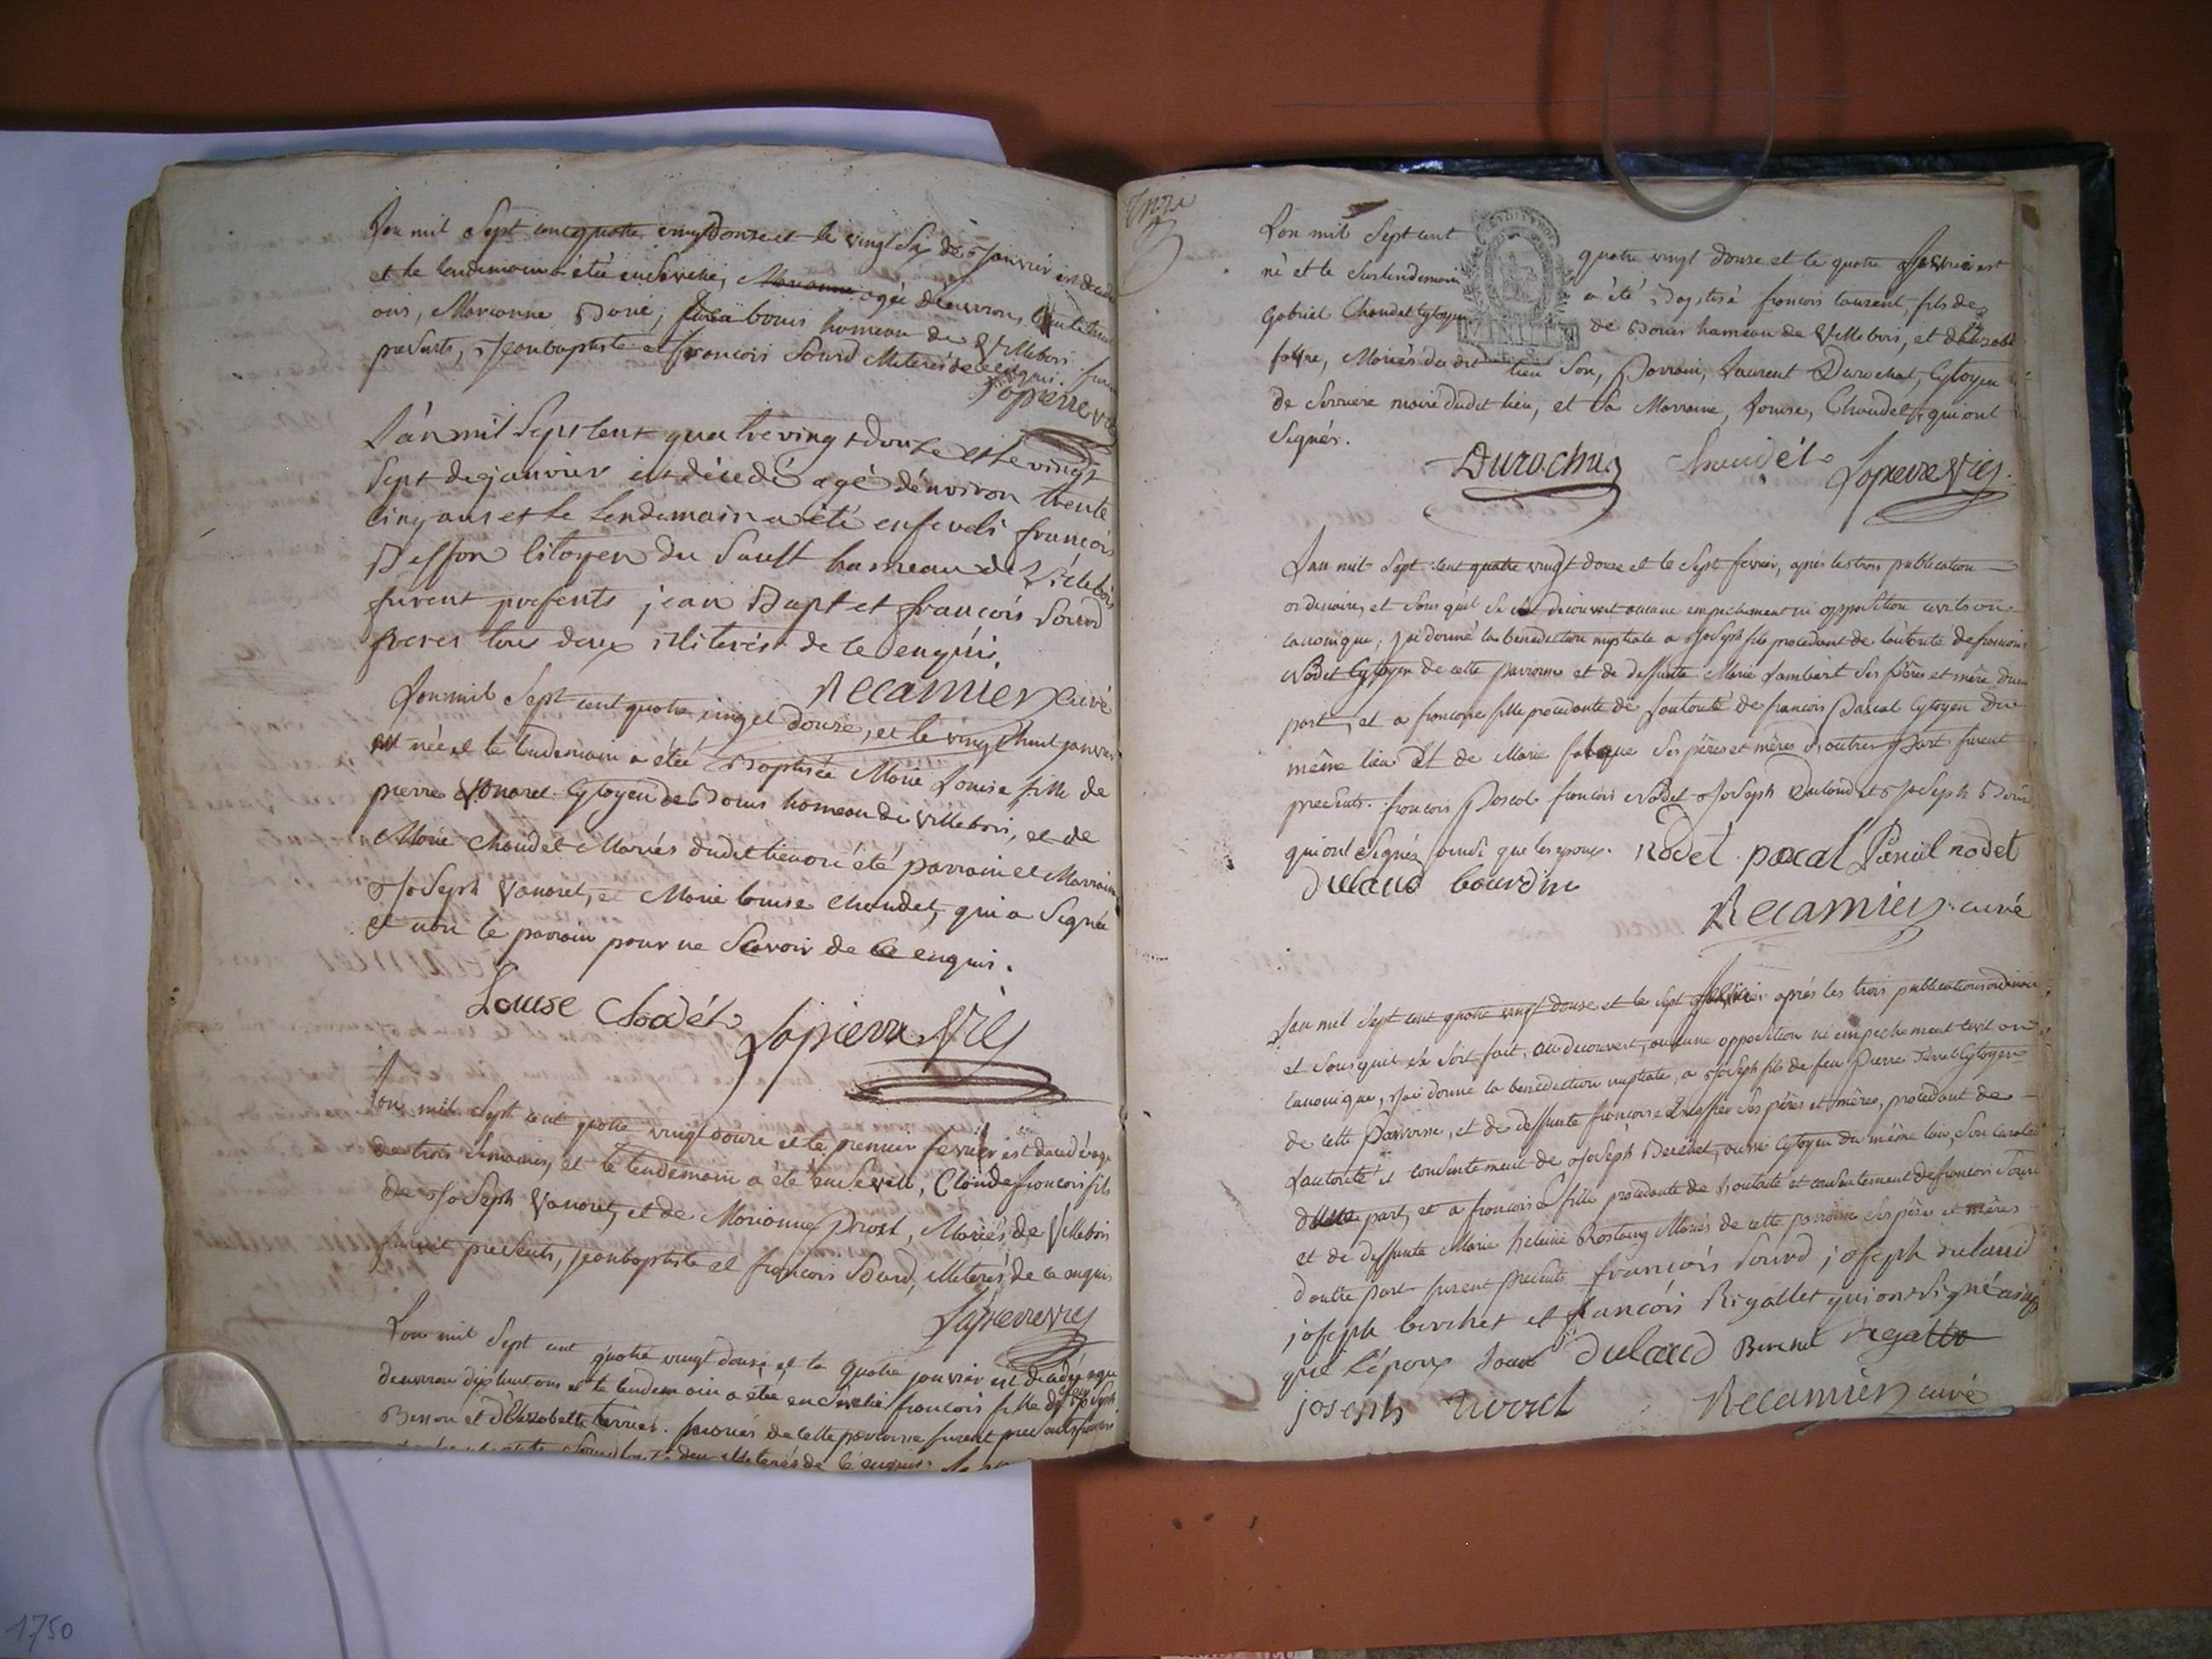 Lan mil Sept cent quatre vingt douse et le vingt Six de Janvier est decedée
et le lendemain a étée ensevelie, agée d'environ trente
ans, Marianne Borié, bouis hameau de Villebois. furent
presents, Jeanbaptiste et francois Sourd illiterés de ce enquis.
Lapierre vic
L'an mil Sept cent quatre vingt douze et le vingt
Sept de janvier est décedé agé d'environ trente
cinq ans et le lendemain a été enseveli françois
Besson citoyen du Sault hameau de Villebois
furent presents jean Bapt et françois Sourd
freres tous deux illiterés de ce enquis,
Recamier curé
Lan mil Sept cent quatre vingt douse, et le vingt huit janvier
est née et le lendemain a étée Baptisée Marie Louise fille de
pierre Vanaret Cytoyen de Bouis hameau de Villebois, et de
Marie Chaudet Mariés dudit lieu ont été parrain et Marraine
Joseph Vanaret, et Marie Louise Chaudet, qui a Signée
et non le parrain pour ne Scavoir de ce enquis.
Louise Chodét Lapierre Vic
Lan mil Sept cent quatre vingt douse et le premier fevrier est decedé agé
de trois Semaines, et le lendemain a été enseveli, Claude francois fils
de Joseph Vanaret, et de Marianne Prost, Mariés de Villebois
furent presents, Jeanbaptiste et francois Sourd, illiterés, de ce enquis
Lapierre vic
Lan mil Sept cent quatre vingt douse, et le quatre janvier est decedée agée
d'environ dix huit ans et le lendemain a étée ensevelie francoise fille de feu Joseph
Besson et d'Elizabette terrier. mariés de cette parroisse furent presents francois
Sourd tous deux illiterés de ce enquis.
onze
Lan mil Sept cent quatre vingt douse et le quatre fevrier est
né et le Surlendemain a été Baptisé francois laurent fils de
Gabriel Chaudet Cytoyen de Bouis hameau de Villebois, et d'Elizabet
favre, Mariés du dit lieu Son Parrain, Laurent Durochat, Cytoyen
de Serriere maire dudit lieu, et Sa Marraine, Louise, Chaudet, qui ont
Signés.
Durochat Chaudét Lapierre Vic.
Lan mil Sept cent quatre vingt douse et le Sept fevrier, après les trois publication
ordinaires et Sans qu'il Se Soit decouvert aucune empechement ni opposition civil ou
canonique, J'ai donné la benediction nuptiale a Joseph fils procedant de l'autorité de francois
Nodet Cytoyen de cette parroisse et de deffunte Marie Lambert Ses pères et mère d'une
part, et a francoise fille procedante de l'autorité de francois Pascal Cytoyen du
même lieu Et de Marie Ses pères et mères d'autres part furent
presents. francois Pascal francois Nodet Joseph Dulaud et Joseph
qui ont Signés ainsi que les epoux. Nodet . pascal Pascal nodet
dulaud bourdin
Recamier curé
Lan mil Sept cent quatre vingt douse et le Sept fevrier après les trois publications ordinaires
et Sans qu'il se Soit fait, ou decouvert, aucune opposition ni empechement civil ou
canonique, J'ai donné la benediction nuptiale, a Joseph fils de feu Pierre Cytoyen
de cette Parroisse, et de deffunte francoise Ses pères et mères, procedant de
L'autorité et consentement de Joseph Berchet, aussi Cytoyen du même lieu, Son Curateur
d'une part, et a francoise fille procedante de L'autorité et consentement de francois Sourd
et de deffunte Marie heleine Rostaing Mariés de cette parroisse Ses pères et mères
d'autre part furent presents françois Sourd joseph dulaud
joseph berchet et françois Rigollet qui ont Signé ainsi
que l'époux Sourd Dulaud Berchet
joseph Recamier curé
1750